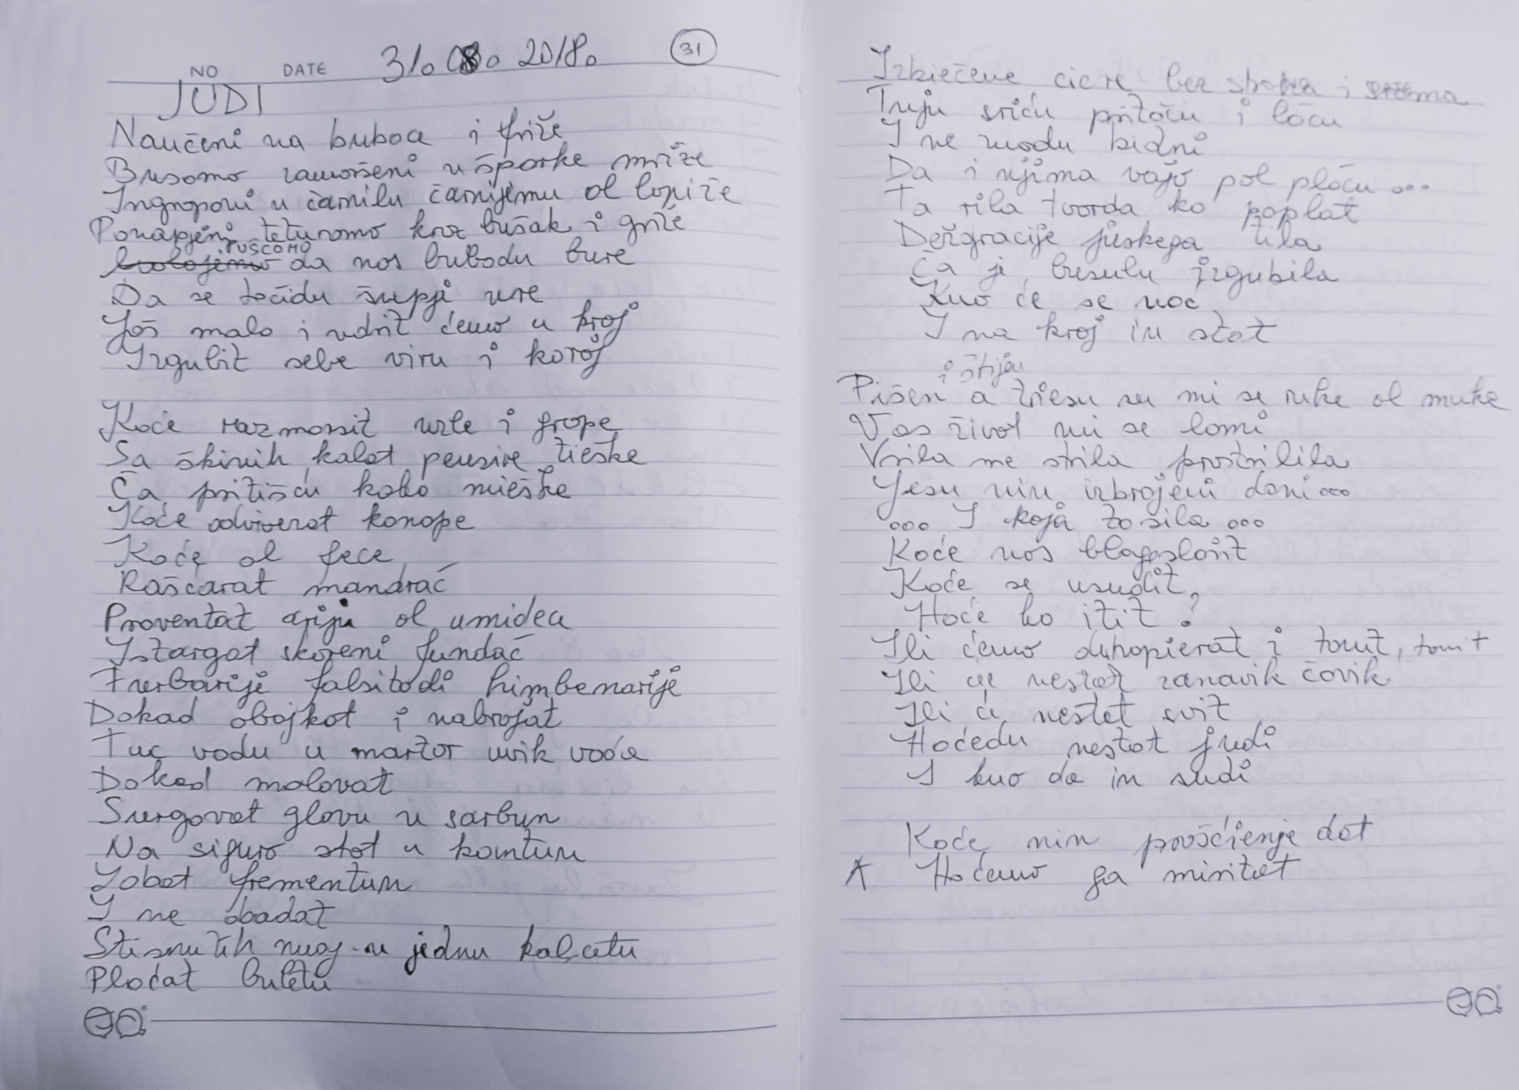 NO DATE 31. 08. 2018. 31
JUDI
Naučeni na buboce i friže
Brsomo zamoršeni u šporke mriže
Ingroponi u čarnilu čarnijemu ol lopiže
Ponapjeni teturomo kroz bušak i griže
PUŠĆOMO
da nos bubodu bure
Da se točidu šupji ure
Još malo i udrit ćemo u kroj
Izgubit sebe viru i koroj
Koće razmorsit uzle i grope
Sa škinih kalat pensire tieške
Ča pritišću koko mieške
Koće odviverat konope
Koće ol fece
Raščarat mandrać
Proventat ariju ol umideca
Istargat skoreni fundać
Furbarije falsitodi himbenarije
Dokad obojkot i nabrojat
Tuć vodu u martor uvik voda
Dokad molovat
Surgovat glovu u sarbun
Na siguro stot u kontun
Zobat frementun
I ne obadat
Stisnutih nuog u jednu kalcetu
Ploćat buletu
Izbiečene cicre bez stroha i srama
Truju sriću pritoču i loču
I ne modu bidni
Da i njima vajo pol ploču ...
Ta rila tvorda ko poplat
Dežgracije juskega tila
Ča ji busulu izgubila
Kuo će se noć
I na kroj in stat
i štijen
Pišen a triesu mi se ruke ol muke
Vas život mi se lomi
Vrila me strila prostrilila
Jesu nin izbrojeni doni...
... I koja to sila ...
Koće nos blagoslovit
Koće se usudit,
Hoće ko itit ?
Ili ćemo duhopierat i tonut, tonut
Ili će nestat zanavik čovik
Ili će nestat svit
Hoćedu nestat judi
I kuo da in sudi
Koće nin prošćienje dat
Hoćemo ga miritat